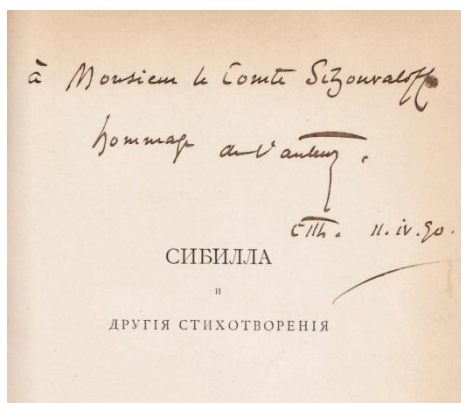 à Monsieur le Comte Schouvaloff
hommage de l'auteur.
СПб. 11.iv.90.
СИБИЛЛА
И
ДРУГІЯ СТИХОТВОРЕНІЯ